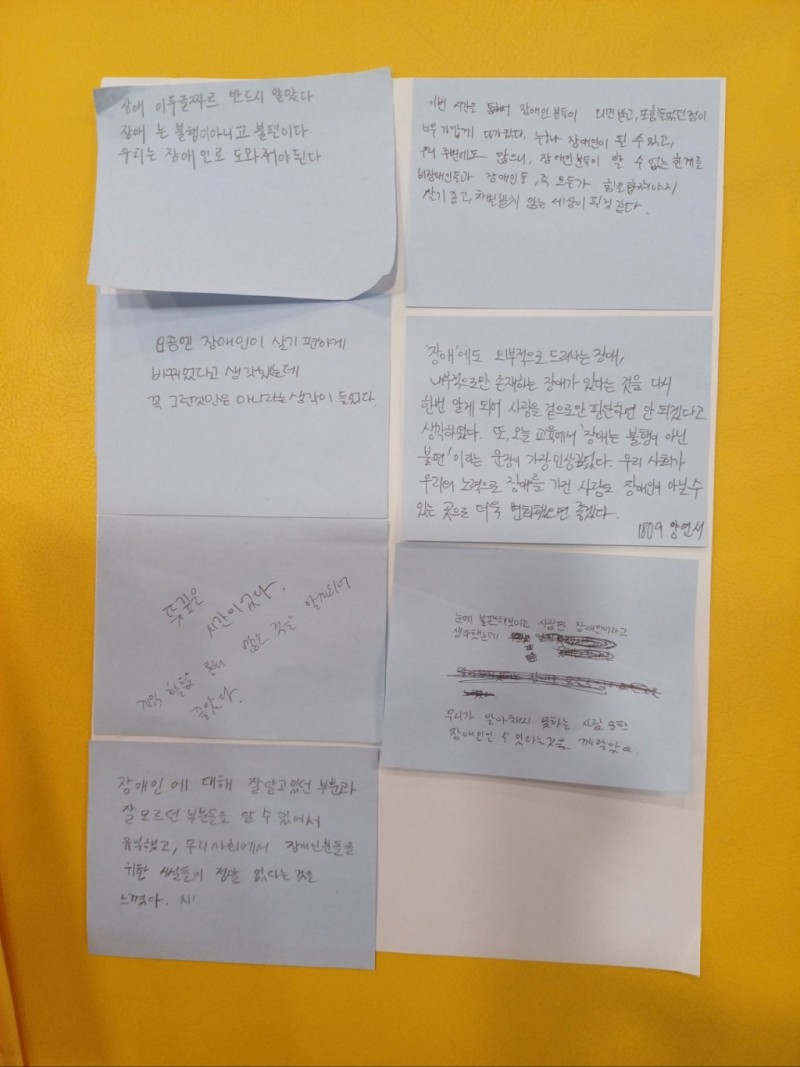 장애 이두글짜르 반드시 알았다
장애 는 불행이아니고 불편이다
우리는 장애인로 도와줘야된다
이번 시간을 통하여 장애인분들이
너무 가깝게 다가왔다. 누구나 장애인이 될 수 있고,
우리 주변에도 많으니, 장애인분들이 할 수 없는 한계를
비장애인들과 장애인들, 즉 모두가
살기 좋고, 차별받지 않는 세상이 된것 같다.
장애인이 살기 편하게
바뀌었다고 생각했는데
꼭 그런것만은 아니라는생각이 들었다.
'장애'에도 외부적으로 드러나는 장애,
내부적으로만 존재하는 장애가 있다는 것을 다시
한번 알게 되어 사람을 겉으로만 판단하면 안 되겠다고
생각하였다. 또, 오늘 교육에서 '장애는 불행이 아닌
불편' 이라는 문장이 가장 인상깊었다. 우리 사회가
우리의 노력으로 장애를 가진 사람도 장애인이 아닐 수
있는 곳으로 더욱 변화했으면 좋겠다.
1809 양연서
뜻깊은
시간이었다.
많은 것을 알게되어
좋았다.
눈에 불편해보이는 사람만 장애인이라고
생각했는데
우리가 알아채지 못하는 사람 또한
장애인일 수 있다는것을 깨달았다.
장애인 에 대해 잘 알고있던 부분과
잘 모르던 부분들을 알 수 있어서
유익했고, 우리사회에서 장애인분들을
위한 시설들이 정말 없다는 것을
느꼈다.